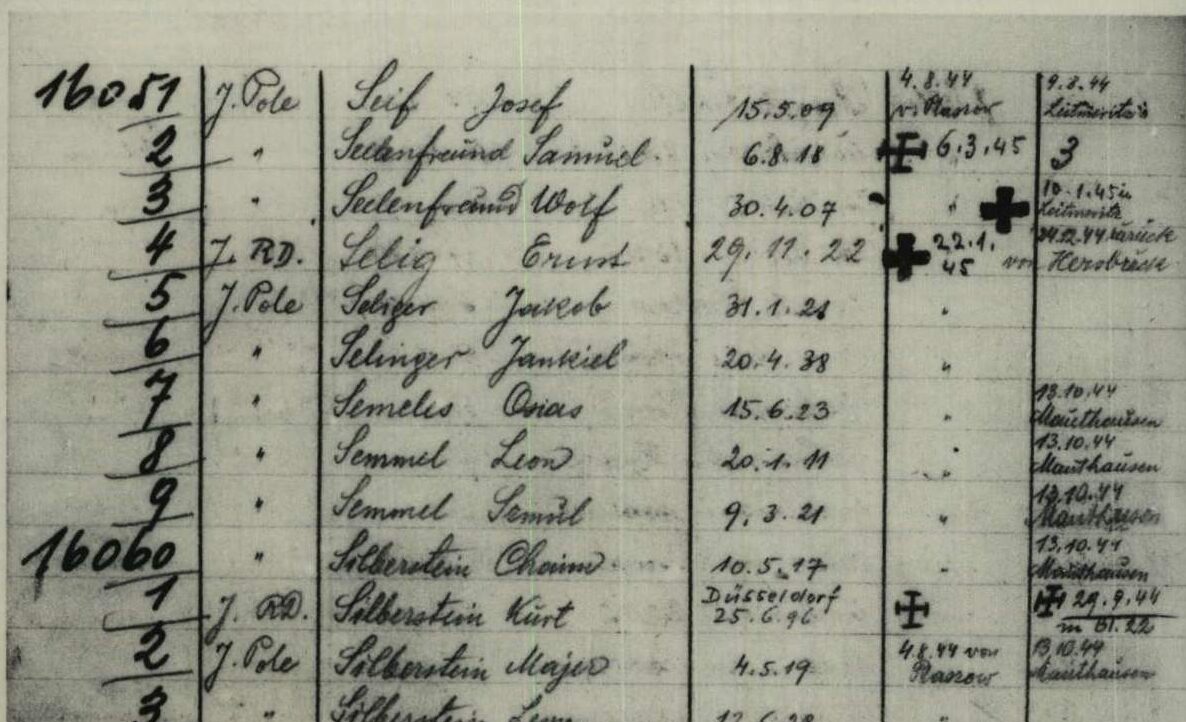 16051 J. Pole Seif Josef 15.5.09 4.8.44 v. Plaszow 9.8.44 Leitmeritz
2 " Seelenfreund Samuel 6.8.18 6.3.45 3
3 " Seelenfreund Wolf 30.4.07 " 10.1.45 in Leitmeritz
4 J. RD. Selig Ernst 29.11.22 22.1.45 24.12.44 zurück von Hersbruck
5 J. Pole Seliger Jakob 31.1.21 "
6 " Selinger Jankiel 20.4.38 "
7 " Semeles Osias 15.6.23 " 13.10.44 Mauthausen
8 " Semmel Leon 20.1.11 " 13.10.44 Mauthausen
9 " Semmel Szmul 9.3.21 " 13.10.44 Mauthausen
16060 " Silberstein Chaim 10.5.17 " 13.10.44 Mauthausen
1 J. RD. Silberstein Kurt Düsseldorf 25.6.96 29.9.44 in Bl.22
2 J. Pole Silberstein Majer 4.5.19 4.8.44 von Plaszow 13.10.44 Mauthausen
3 " Silberstein Leon "